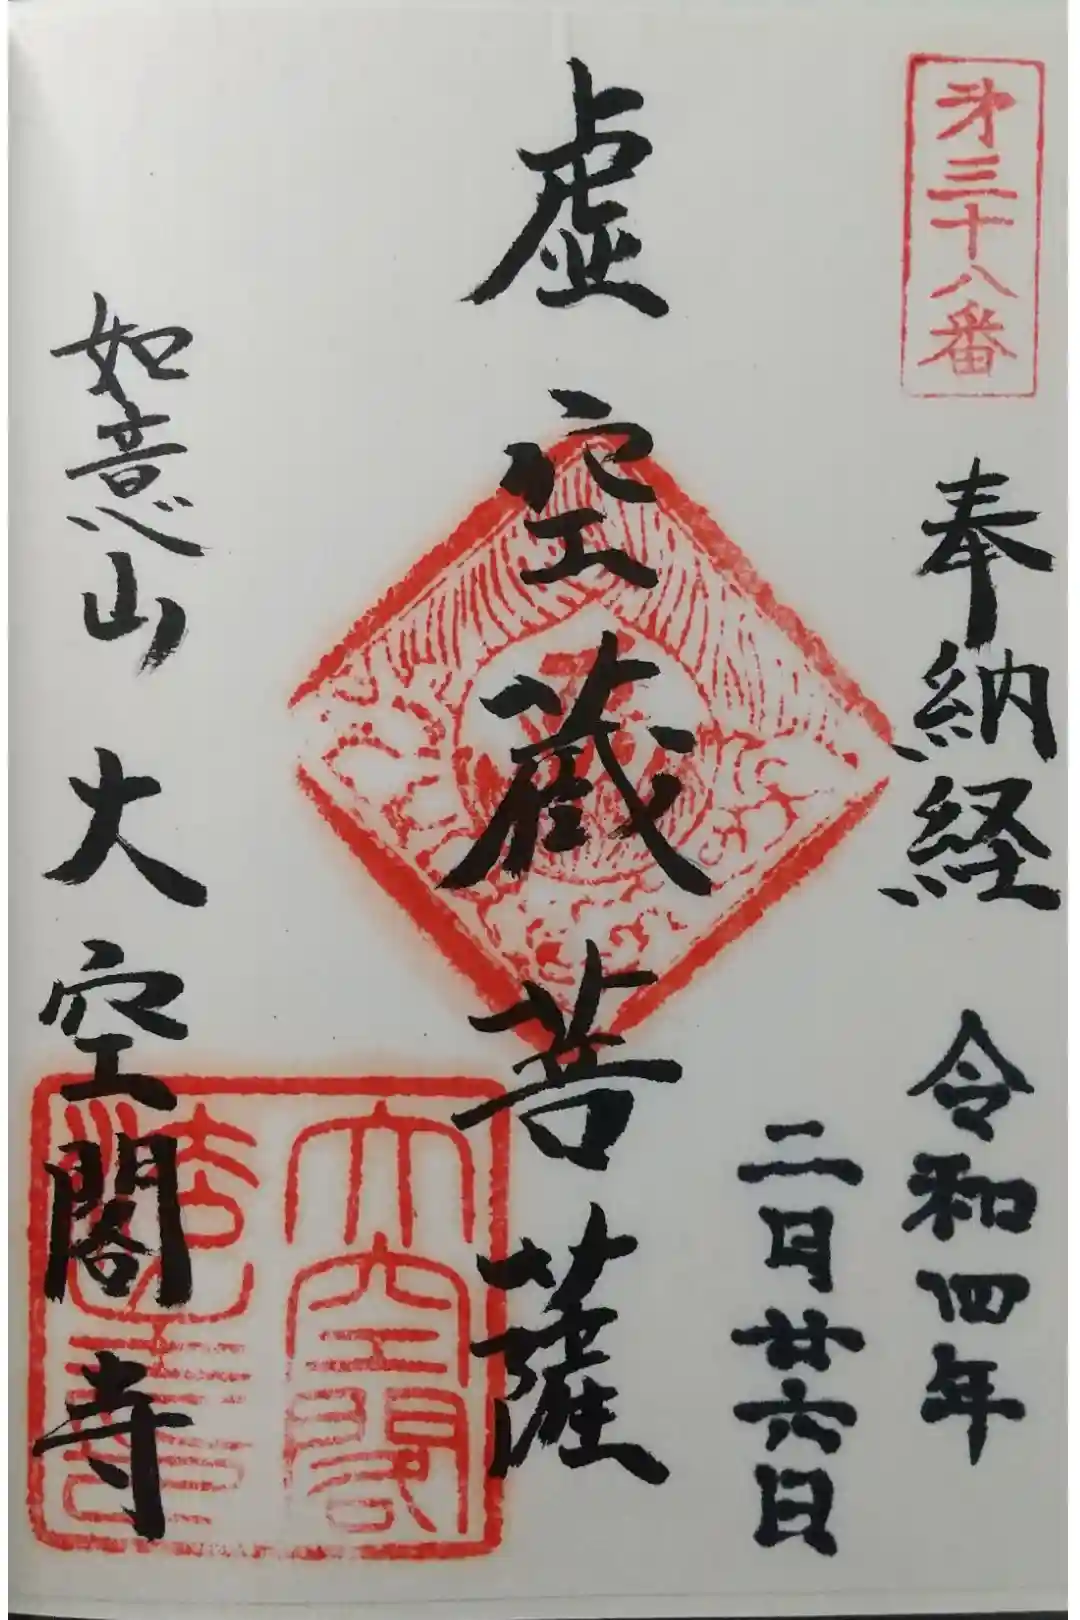 第三十八番
奉納経 令和四年
二月廿六日
虚空蔵菩薩
如意山 大空閣寺